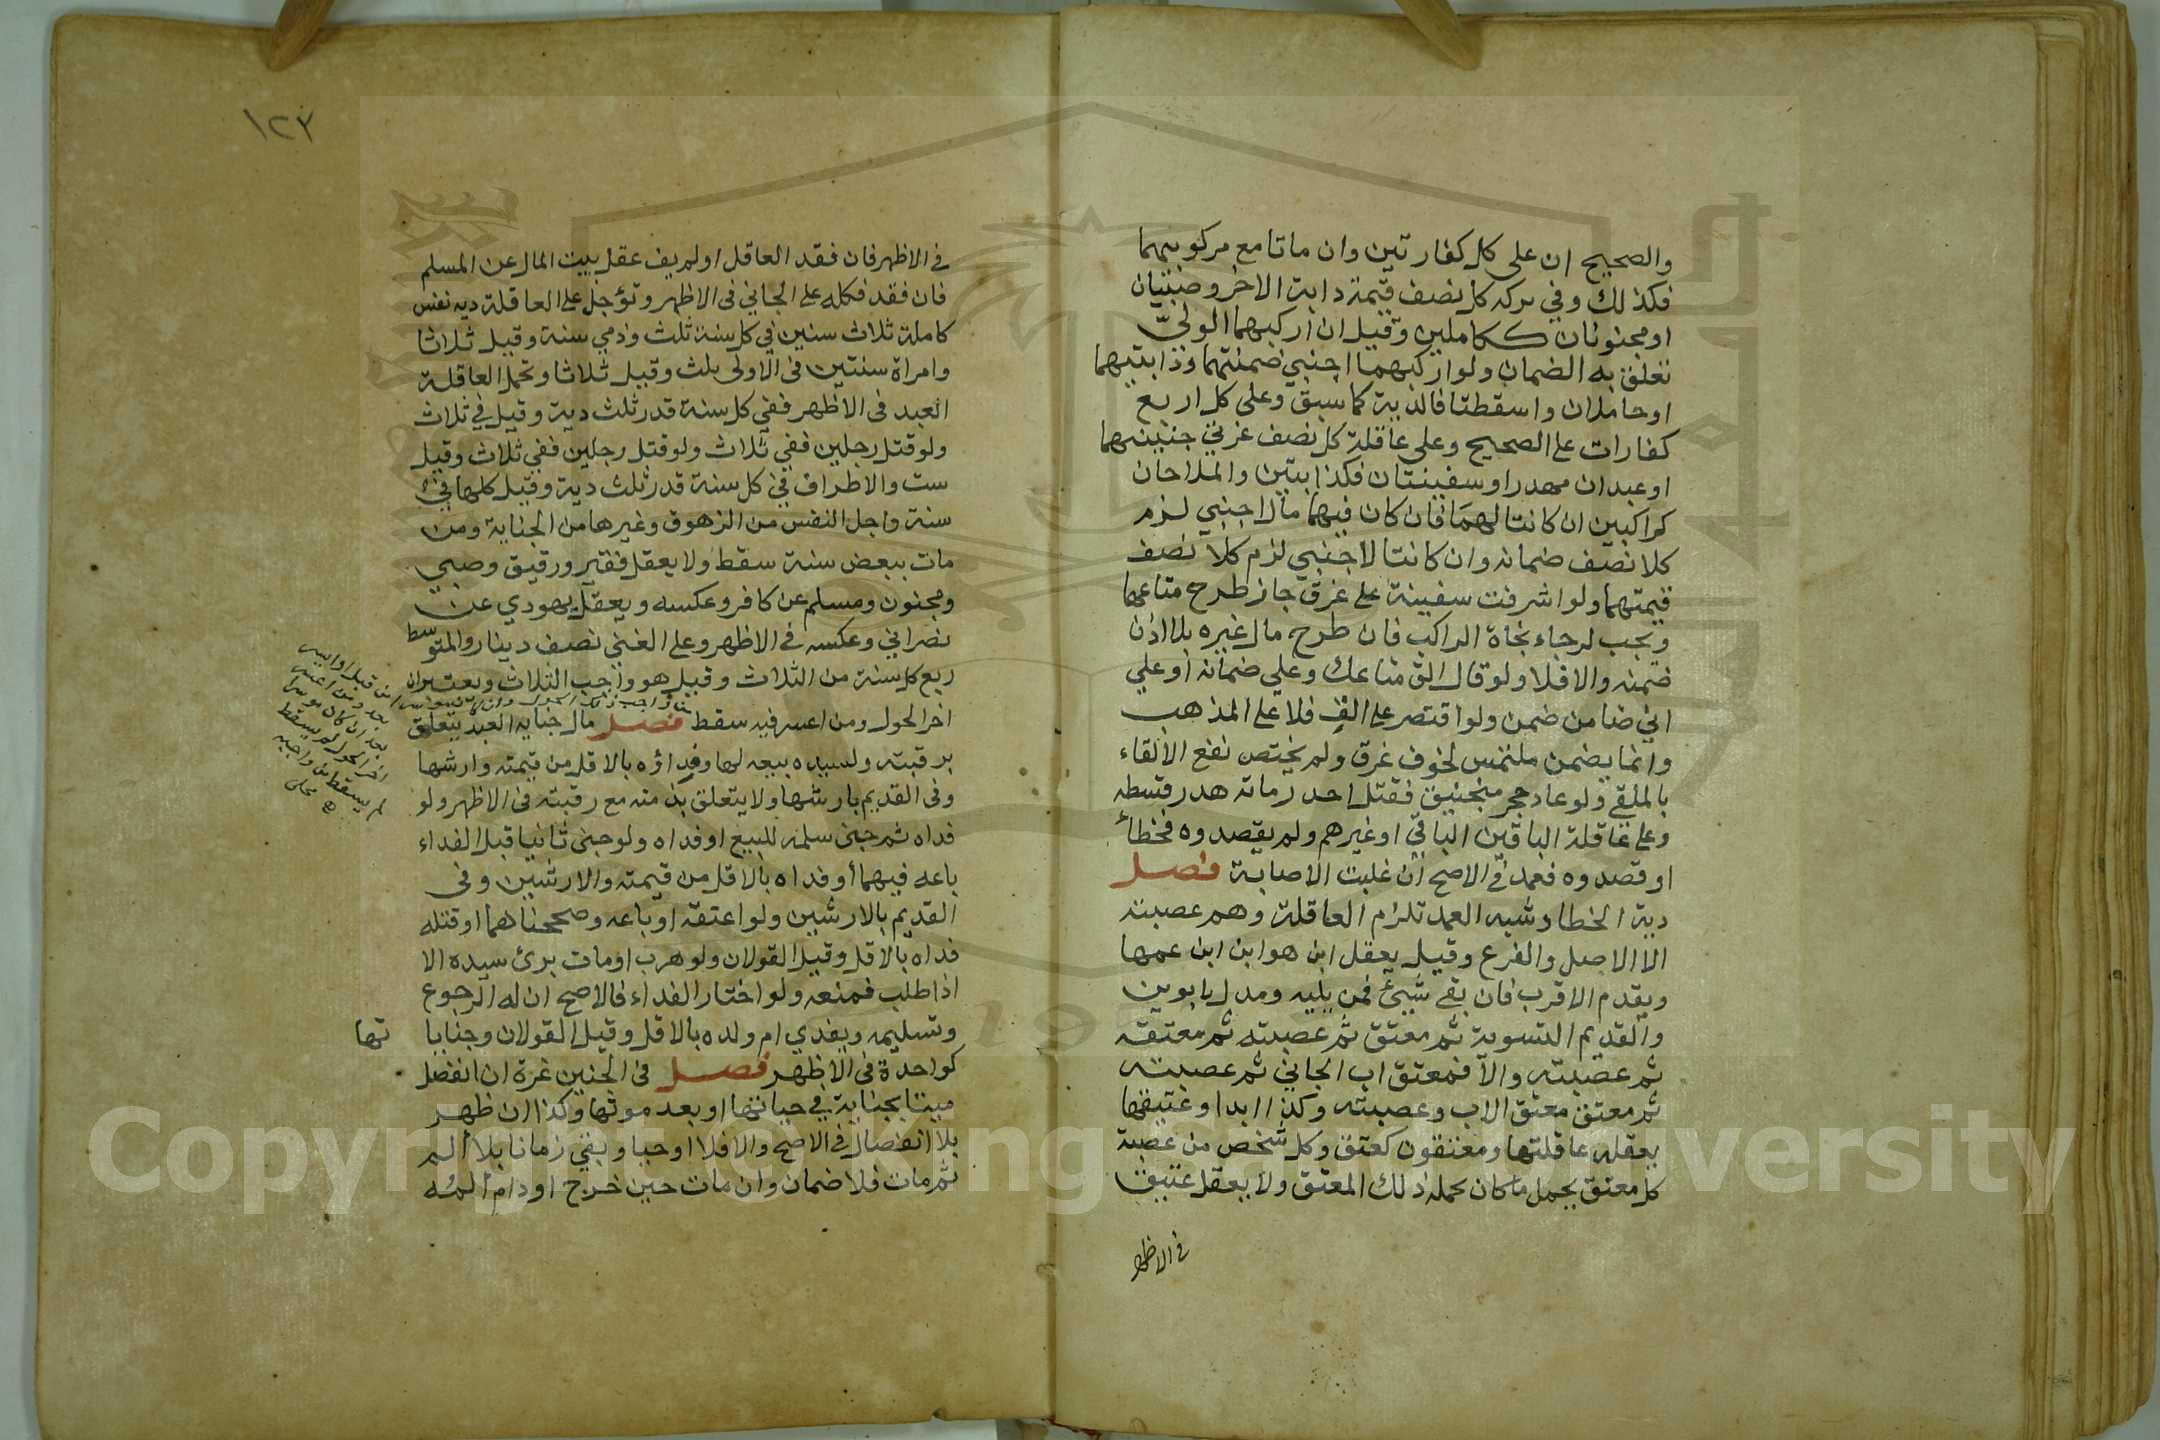 والصحيح ان على كل كفارتين وان ماتا مع مركوبيهما
فكذلك وفي تركة كل نصف قيمة دابة الاخر وصبيان
او مجنونان ككاملين وقيل ان اركبهما الولي
تعلق به الضمان ولو اركبهما اجنبي ضمنتهما ودابتيهما
او حاملان واسقطتا فالدية كما سبق وعلى كل اربع
كفارات على الصحيح وعلى عاقلة كل نصف غرتي جنينيهما
او عبدان مهدر او سفينتان فكدابتين والملاحان
كراكبين ان كانتا لهما فان كان فيهما مال اجنبي لزم
كلا نصف ضمانه وان كانتا لاجنبي لزم كلا نصف
قيمتهما ولو اشرفت سفينة على غرق جاز طرح متاعها
ويجب لرجاء نجاة الراكب فان طرح مال غيره بلا اذن
ضمنه والا فلا ولو قال الق متاعك وعلي ضمانه او علي
اني ضامن ضمن ولو اقتصر على الق فلا على المذهب
وانما يضمن ملتمس لخوف غرق ولم يختص نفع الالقاء
بالملقي ولو عاد حجر منجنيق فقتل احد رماته هدر قسطه
وعلى عاقلة الباقين الباقي او غيرهم ولم يقصدوه فخطأ
او قصدوه فعمد في الاصح ان غلبت الاصابة فصل
دية الخطا وشبه العمد تلزم العاقلة وهم عصبته
الا الاصل والفرع وقيل يعقل ابن هو ابن ابن عمها
ويقدم الاقرب فان بقي شيئ فمن يليه ومدل بابوين
والقديم التسوية ثم معتق ثم عصبته ثم معتقه
ثم عصبته والا فمعتق اب الجاني ثم عصبته
ثم معتق معتق الاب وعصبته وكذا ابدا وعتيقها
يعقله عاقلتها ومعتقون كمعتق وكل شخص من عصبة
كل معتق يحمل ما كان يحمله ذلك المعتق ولا يعقل عتيق
في الاظهر
١٢٣
في الاظهر فان فقد العاقل او لم يف عقل بيت المال عن المسلم
فان فقد فكله على الجاني في الاظهر وتؤجل على العاقلة دية نفس
كاملة ثلاث سنين في كل سنة ثلث وذمي سنة وقيل ثلاثا
وامراة سنتين في الاولى ثلث وقيل ثلاثا وتحمل العاقلة
العبد في الاظهر ففي كل سنة قدر ثلث دية وقيل في ثلاث
ولو قتل رجلين ففي ثلاث ولو قتل رجلين ففي ثلاث وقيل
ست والاطراف في كل سنة قدر ثلث دية وقيل كلها في
سنة واجل النفس من الزهوق وغيرها من الجناية ومن
مات ببعض سنة سقط ولا يعقل فقير ورقيق وصبي
ومجنون ومسلم عن كافر وعكسه ويعقل يهودي عن
نصراني وعكسه في الاظهر وعلى الغني نصف دينار والمتوسط
ربع كل سنة من الثلاث وقيل هو واجب الثلاث ويعتبران
اخر الحول ومن اعسر فيه سقط فصل مال جناية العبد يتعلق
برقبته ولسيده بيعه لها وفداؤه بالاقل من قيمته وارشها
وفي القديم بارشها ولا يتعلق بذمته مع رقبته في الاظهر ولو
فداه ثم جنى سلمه للبيع او فداه ولو جنى ثانيا قبل الفداء
باعه فيهما أو فداه بالاقل من قيمته والارشين وفي
القديم بالارشين ولو اعتقه او باعه وصححناهما او قتله
فداه بالاقل وقيل القولان ولو هرب او مات برئ سيده الا
اذا طلب فمنعه ولو اختار الفداء فالاصح ان له الرجوع
وتسليمه ويفدي ام ولده بالاقل وقيل القولان وجنايا تها
كواحدة في الاظهر فصل في الجنين غرة ان انفصل
ميتا بجناية في حياتها او بعد موتها وكذا ان ظهر
بلا انفصال في الاصح والا فلا او حيا وبقي زمانا بلا الم
ثم مات فلا ضمان وان مات حين خرج او دام ألمه
Copyright © King Saud University